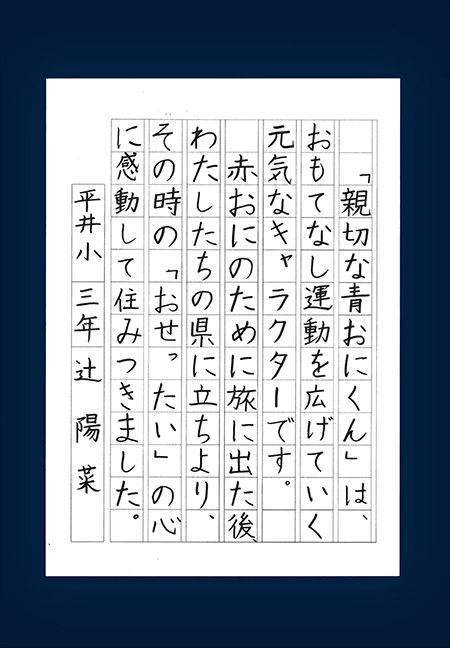 「親切な青おにくん」は、
おもてなし運動を広げていく
元気なキャラクターです。
赤おにのために旅に出た後、
わたしたちの県に立ちより、
その時の「おせったい」の心
に感動して住みつきました。
平井小 三年 辻 陽菜